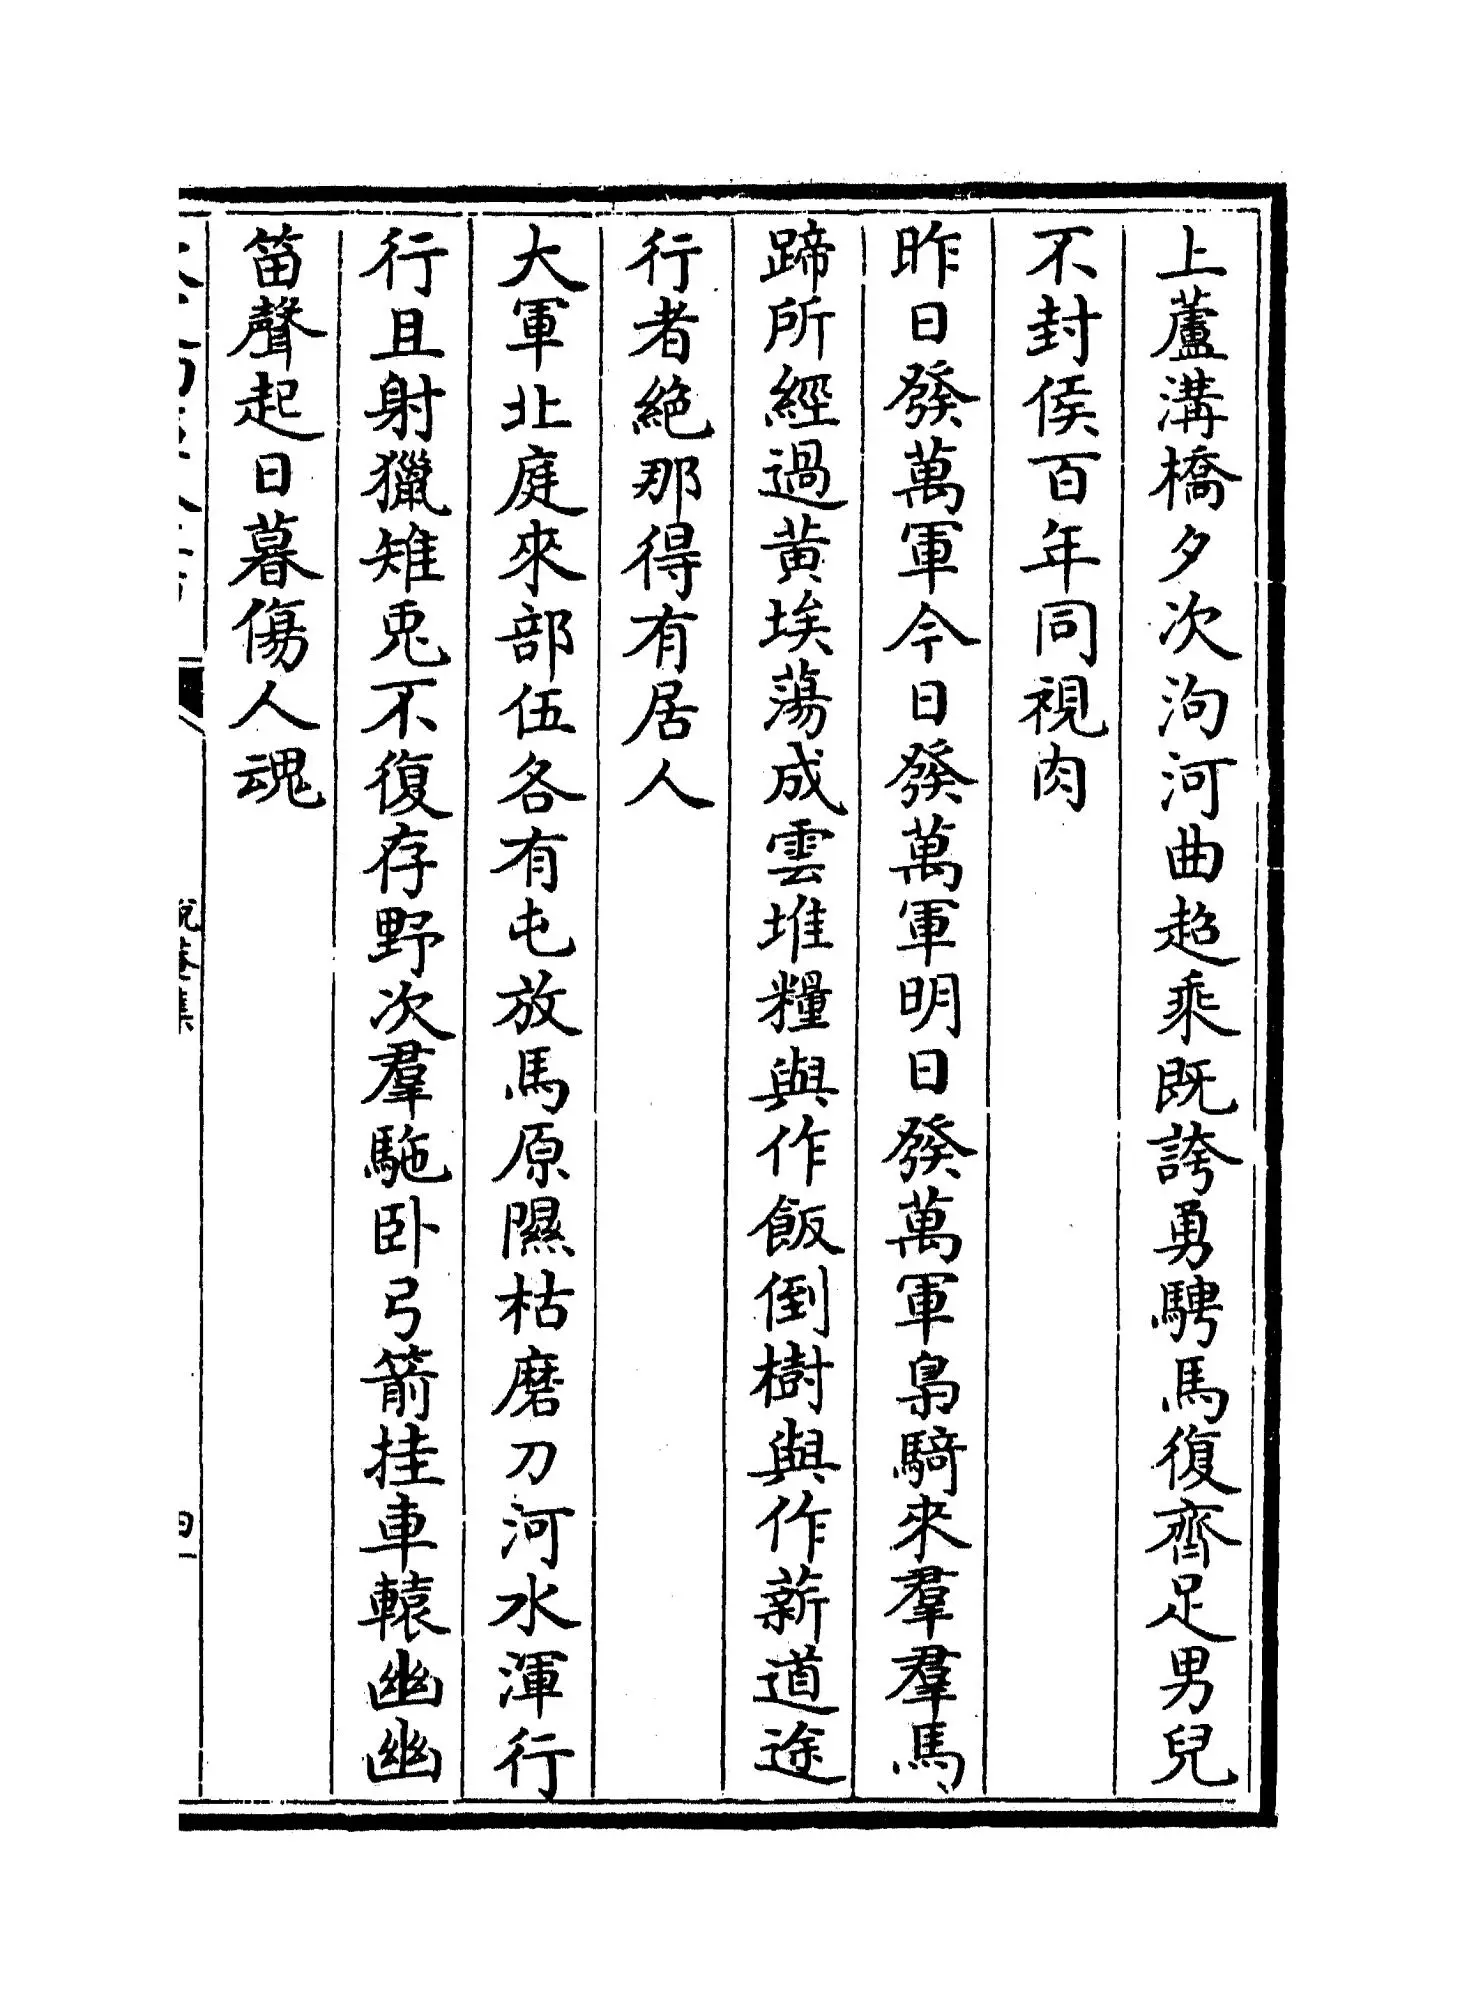 上蘆溝橋夕次泃河曲超乘既誇勇騁馬復齊足男兒
不封侯百年同視肉
昨日發萬軍今日發萬軍明日發萬軍梟騎來羣羣馬
蹄所經過黄埃蕩成雲堆糧與作飯倒樹與作薪道途
行者絶那得有居人
大軍北庭來部伍各有屯放馬原隰枯磨刀河水渾行
行且射獵雉兎不復存野次羣駞卧弓箭挂車轅幽幽
笛聲起日暮傷人魂